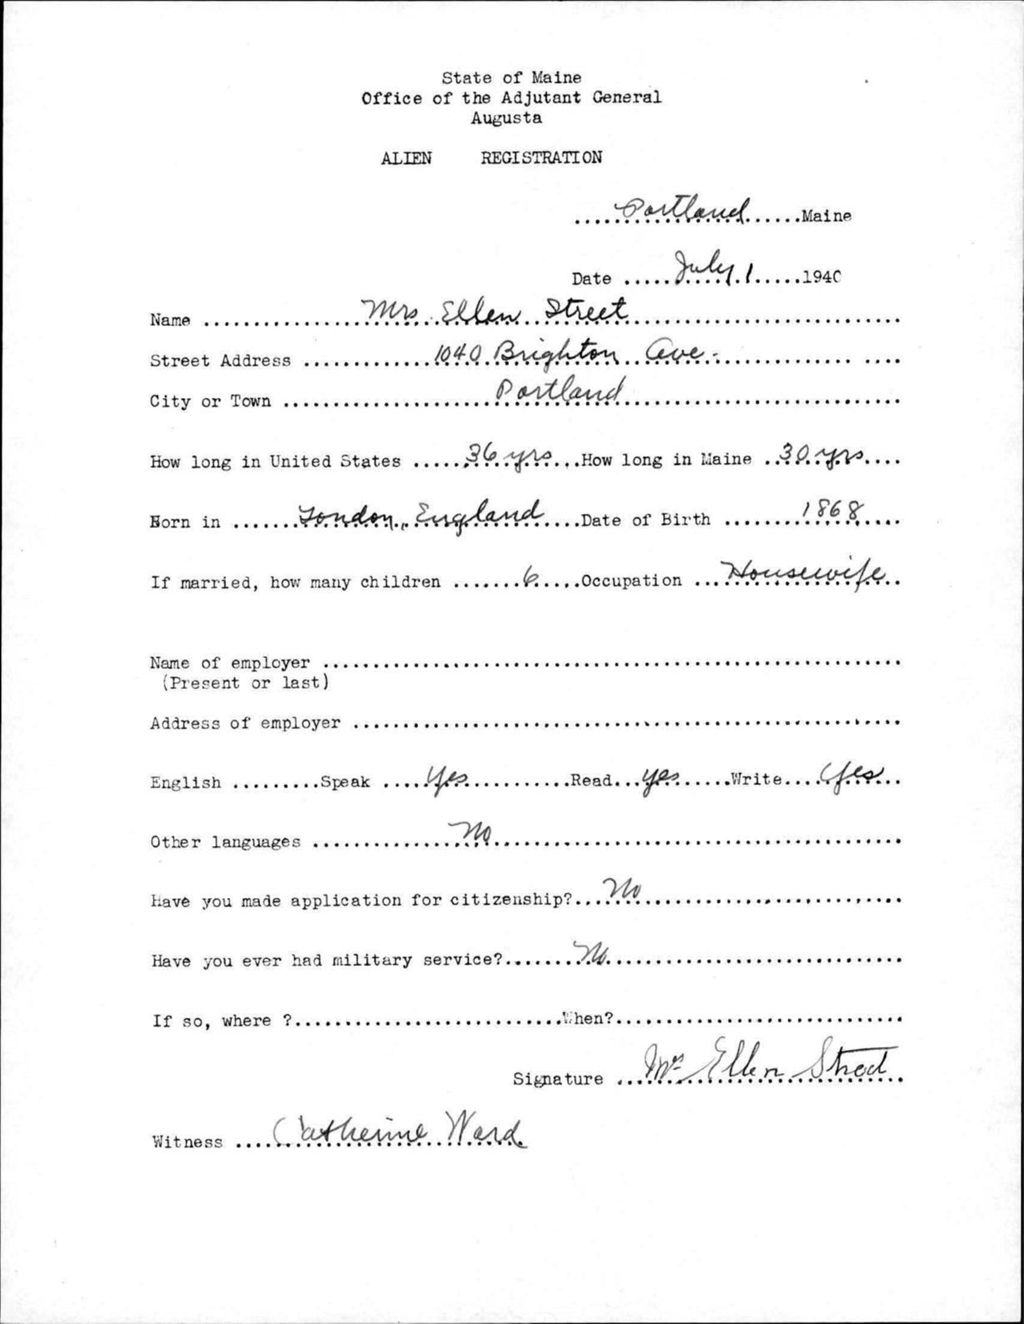 State of Maine
Office of the Adjutant General
Augusta
ALIEN REGISTRATION
....Portland......Maine
Date .....July 1.....1940
Name ................Mrs Ellen Street............................
Street Address .............1040 Brighton Ave................
City or Town .....................Portland............................
How long in United States .....36 yrs...How long in Maine ..30 yrs....
Born in .......London, England....Date of Birth ........1868....
If married, how many children .......6.....Occupation ...Housewife..
Name of employer ..........................................................
(Present or last)
Address of employer .......................................................
English .........Speak ....Yes...........Read...yes......Write....Yes..
Other languages ..............No.........................................
Have you made application for citizenship?...No..........................
Have you ever had military service?.......No..............................
If so, where ?...........................When?.............................
Signature ...Mrs Ellen Street
Witness ....Catherine Ward